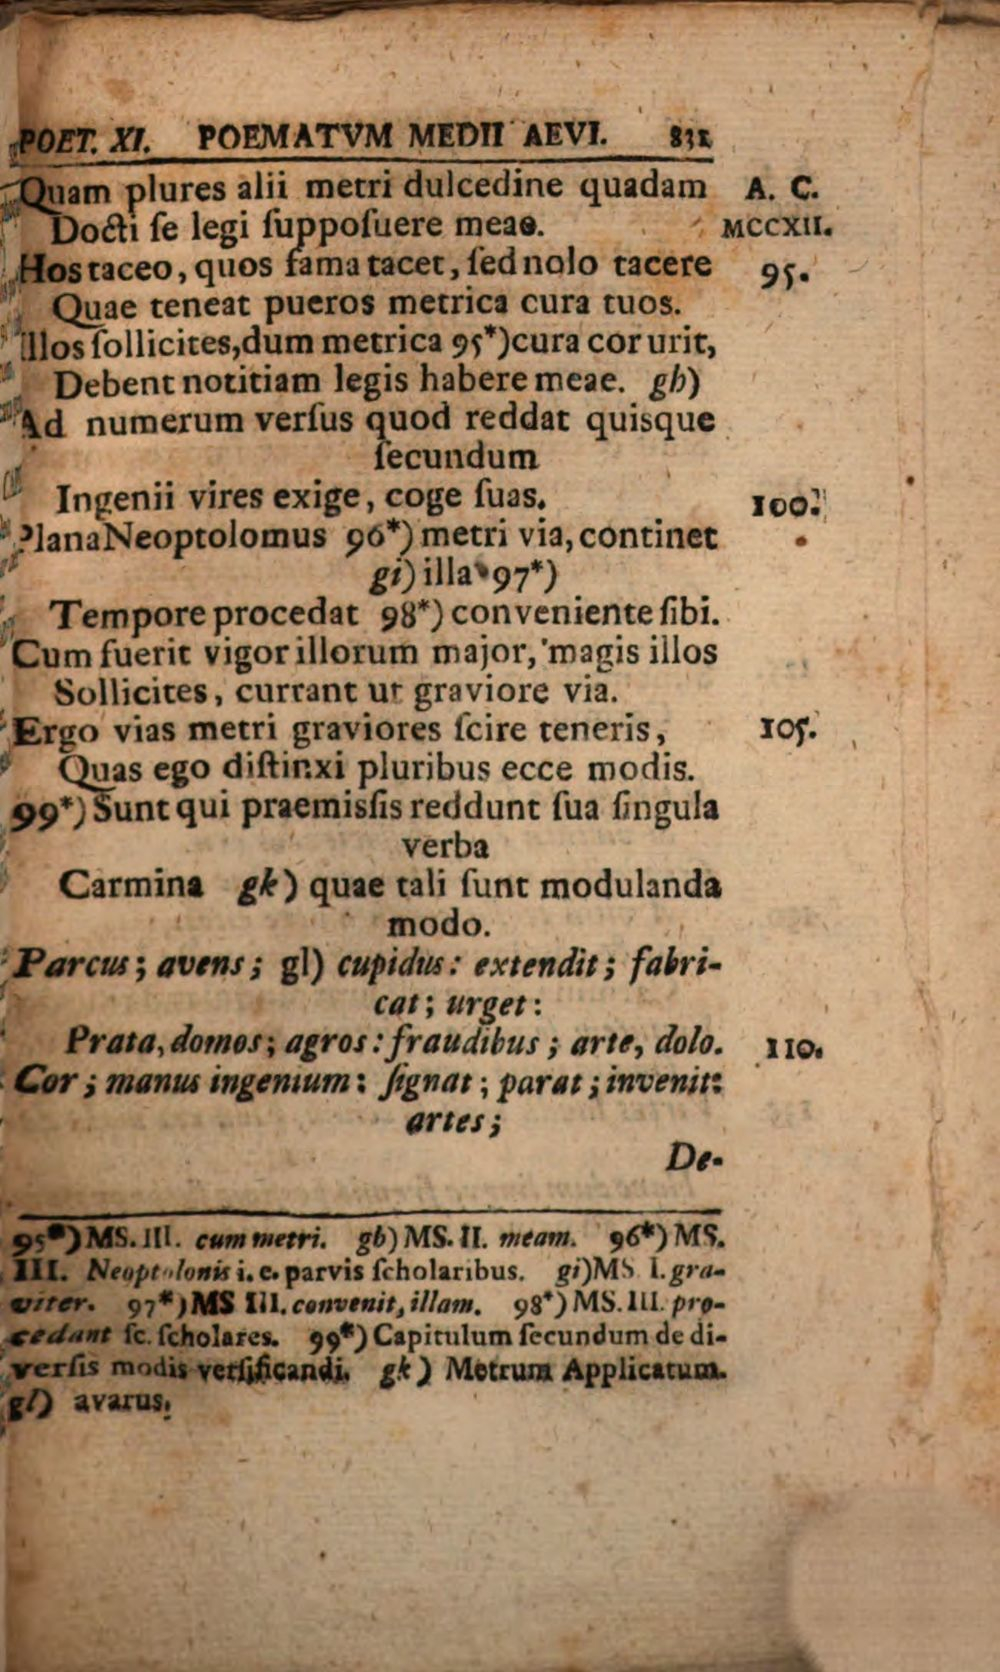 POET. XI. POEMATVM MEDII AEVI. 831
Quam plures alii metri dulcedine quadam A. C.
Docti ſe legi ſuppoſuere meae. MCCXII.
Hos taceo, quos fama tacet, ſed nolo tacere 95.
Quae teneat pueros metrica cura tuos.
Illos ſollicites, dum metrica 95*) cura cor urit,
Debent notitiam legis habere meae. gh)
Ad numerum verſus quod reddat quisque
ſecundum
Ingenii vires exige, coge ſuas. 100.
Plana Neoptolomus 96*) metri via, continet
gi) illa 97*)
Tempore procedat 98*) conveniente ſibi.
Cum fuerit vigor illorum major, magis illos
Sollicites, currant ut graviore via.
Ergo vias metri graviores ſcire teneris, 105.
Quas ego diſtinxi pluribus ecce modis.
99*) Sunt qui praemisſis reddunt ſua ſingula
verba
Carmina gk) quae tali ſunt modulanda
modo.
Parcus; avens; gl) cupidus: extendit; fabri-
cat; urget:
Prata, domos; agros: fraudibus; arte, dolo. 110.
Cor; manus ingenium: ſignat; parat; invenit:
artes;
De-
95*) MS. III. cum metri. gh) MS. II. meam. 96*) MS.
III. Neoptolonis i. e. parvis ſcholaribus. gi) MS I. gra-
viter. 97*) MS III. convenit, illam. 98*) MS. III. pro-
cedant ſc. ſcholares. 99*) Capitulum ſecundum de di-
verſis modis verſificandi. gk) Metrum Applicatum.
gl) avarus.